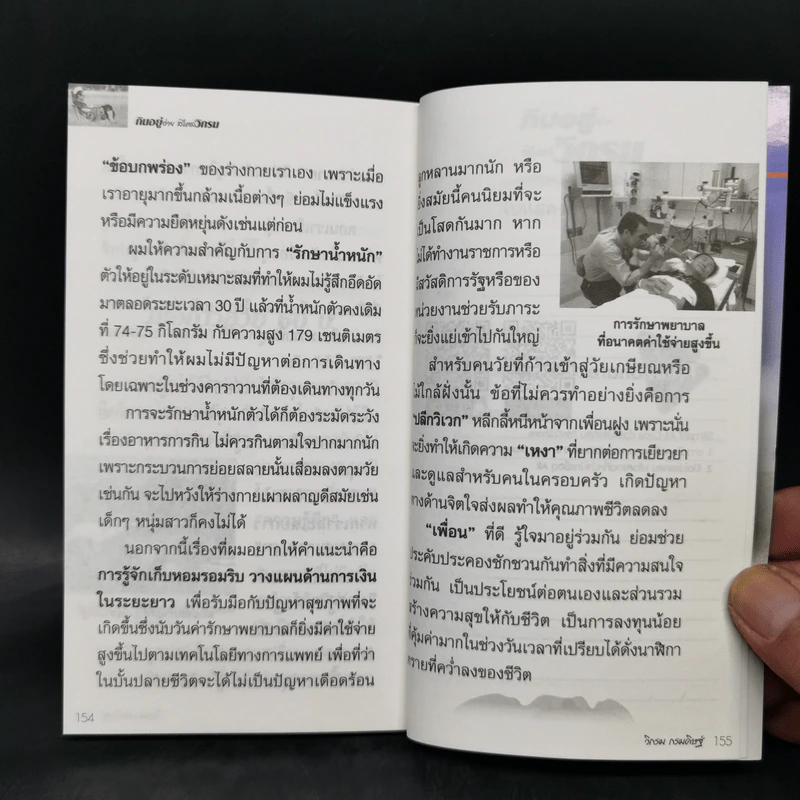 กินอยู่ง่าย สไตล์วิกรม
“ข้อบกพร่อง” ของร่างกายเราเอง เพราะเมื่อ
เราอายุมากขึ้นกล้ามเนื้อต่างๆ ย่อมไม่แข็งแรง
หรือมีความยืดหยุ่นดังเช่นแต่ก่อน
ผมให้ความสำคัญกับการ “รักษาน้ำหนัก”
ตัวให้อยู่ในระดับเหมาะสมที่ทำให้ผมไม่รู้สึกอึดอัด
มาตลอดระยะเวลา 30 ปี แล้วที่น้ำหนักตัวคงเดิม
ที่ 74-75 กิโลกรัม กับความสูง 179 เซนติเมตร
ซึ่งช่วยทำให้ผมไม่มีปัญหาต่อการเดินทาง
โดยเฉพาะในช่วงคาราวานที่ต้องเดินทางทุกวัน
การจะรักษาน้ำหนักตัวได้ก็ต้องระมัดระวัง
เรื่องอาหารการกิน ไม่ควรกินตามใจปากมากนัก
เพราะกระบวนการย่อยสลายนั้นเสื่อมลงตามวัย
เช่นกัน จะไปหวังให้ร่างกายเผาผลาญดีสมัยเช่น
เด็กๆ หนุ่มสาวก็คงไม่ได้
นอกจากนี้เรื่องที่ผมอยากให้คำแนะนำคือ
การรู้จักเก็บหอมรอมริบ วางแผนด้านการเงิน
ในระยะยาว เพื่อรับมือกับปัญหาสุขภาพที่จะ
เกิดขึ้นซึ่งนับวันค่ารักษาพยาบาลก็ยิ่งมีค่าใช้จ่าย
สูงขึ้นไปตามเทคโนโลยีทางการแพทย์ เพื่อที่ว่า
ในบั้นปลายชีวิตจะได้ไม่เป็นปัญหาเดือดร้อน
154
ลูกหลานมากนัก หรือ
ยิ่งสมัยนี้คนนิยมที่จะ
เป็นโสดกันมาก หาก
ไม่ได้ทำงานราชการหรือ
มีสวัสดิการรัฐหรือของ
หน่วยงานช่วยรับภาระ
ก็จะยิ่งแย่เข้าไปกันใหญ่
การรักษาพยาบาล
ที่อนาคตค่าใช้จ่ายสูงขึ้น
สำหรับคนวัยที่ก้าวเข้าสู่วัยเกษียณหรือ
ไม้ใกล้ฝั่งนั้น ข้อที่ไม่ควรทำอย่างยิ่งคือการ
“ปลีกวิเวก” หลีกลี้หนีหน้าจากเพื่อนฝูง เพราะนั่น
จะยิ่งทำให้เกิดความ “เหงา” ที่ยากต่อการเยียวยา
และดูแลสำหรับคนในครอบครัว เกิดปัญหา
ทางด้านจิตใจส่งผลทำให้คุณภาพชีวิตลดลง
“เพื่อน” ที่ดี รู้ใจมาอยู่ร่วมกัน ย่อมช่วย
ประคับประคองชักชวนกันทำสิ่งที่มีความสนใจ
ร่วมกัน เป็นประโยชน์ต่อตนเองและส่วนรวม
สร้างความสุขให้กับชีวิต เป็นการลงทุนน้อย
ที่คุ้มค่ามากในช่วงวันเวลาที่เปรียบได้ดั่งนาฬิกา
ทรายที่คว่ำลงของชีวิต
วิกรม กรมดิษฐ์ 155